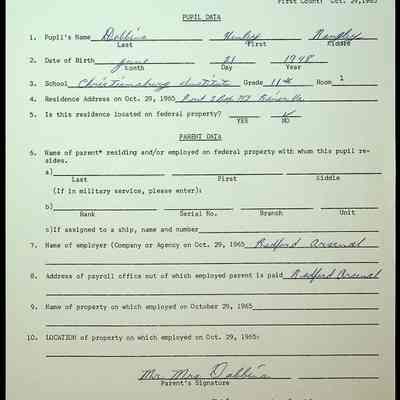 First Count: Oct. 29,1965
PUPIL DATA
1. Pupil's Name Dobbins
Last First Middle
2. Date of Birth June 21 1948
Month Day Year
3. School Christiansburg Institute Grade 11th Room 1
4. Residence Address on Oct. 29, 1965 Rout 2 Box
5. Is this residence located on federal property? YES ✓ NO
PARENT DATA
6. Name of parent* residing and/or employed on federal property with whom this pupil re-
sides.
a)
Last First Middle
(If in military service, please enter):
b)
Rank Serial No. Branch Unit
c)If assigned to a ship, name and number
7. Name of employer (Company or Agency on Oct. 29, 1965 Radford Arsenal
8. Address of payroll office out of which employed parent is paid Radford Arsenal
9. Name of property on which employed on October 29, 1965
10. LOCATION of property on which employed on Oct. 29, 1965:
Mr. Mrs Dobbins
Parent's Signature